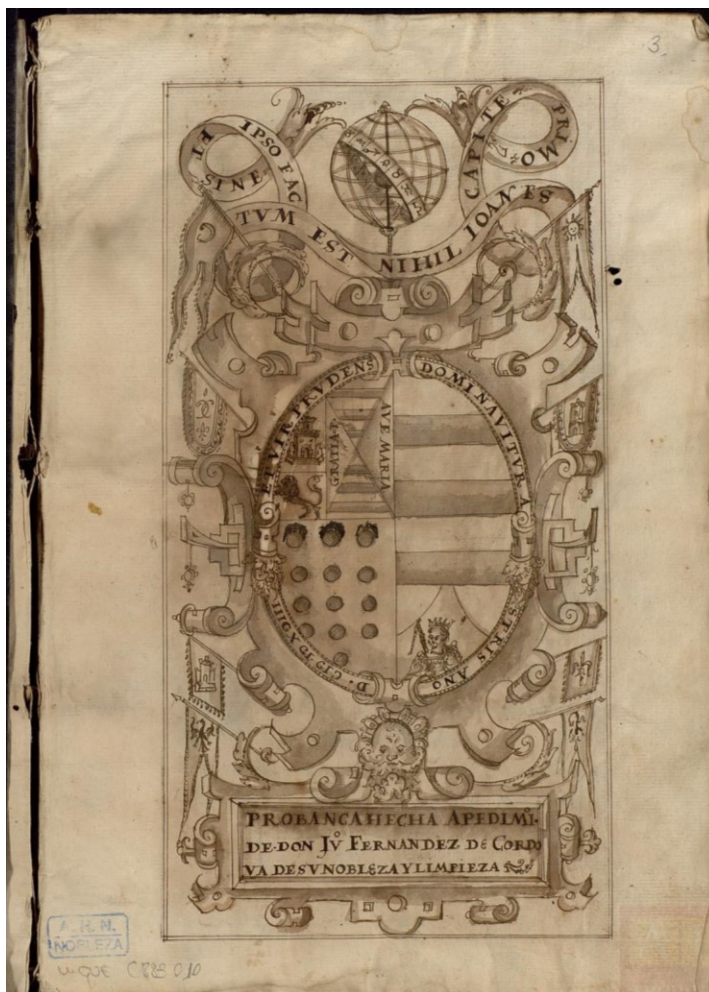 3
ET SINE IPSO FACTVM EST NIHIL IOANES CAPITE PRIMO
ET VIR PRVDENS DOMINAVITVR ASTRIS AÑO
GRATIA P
AVE MARIA
PROBANCA HECHA A PEDIMIº.
DE·DON Jvº FERNANDEZ DE CORDO
VA DE SV NOBLEZA Y LIMPIEZA
A. H. N.
NOBLEZA